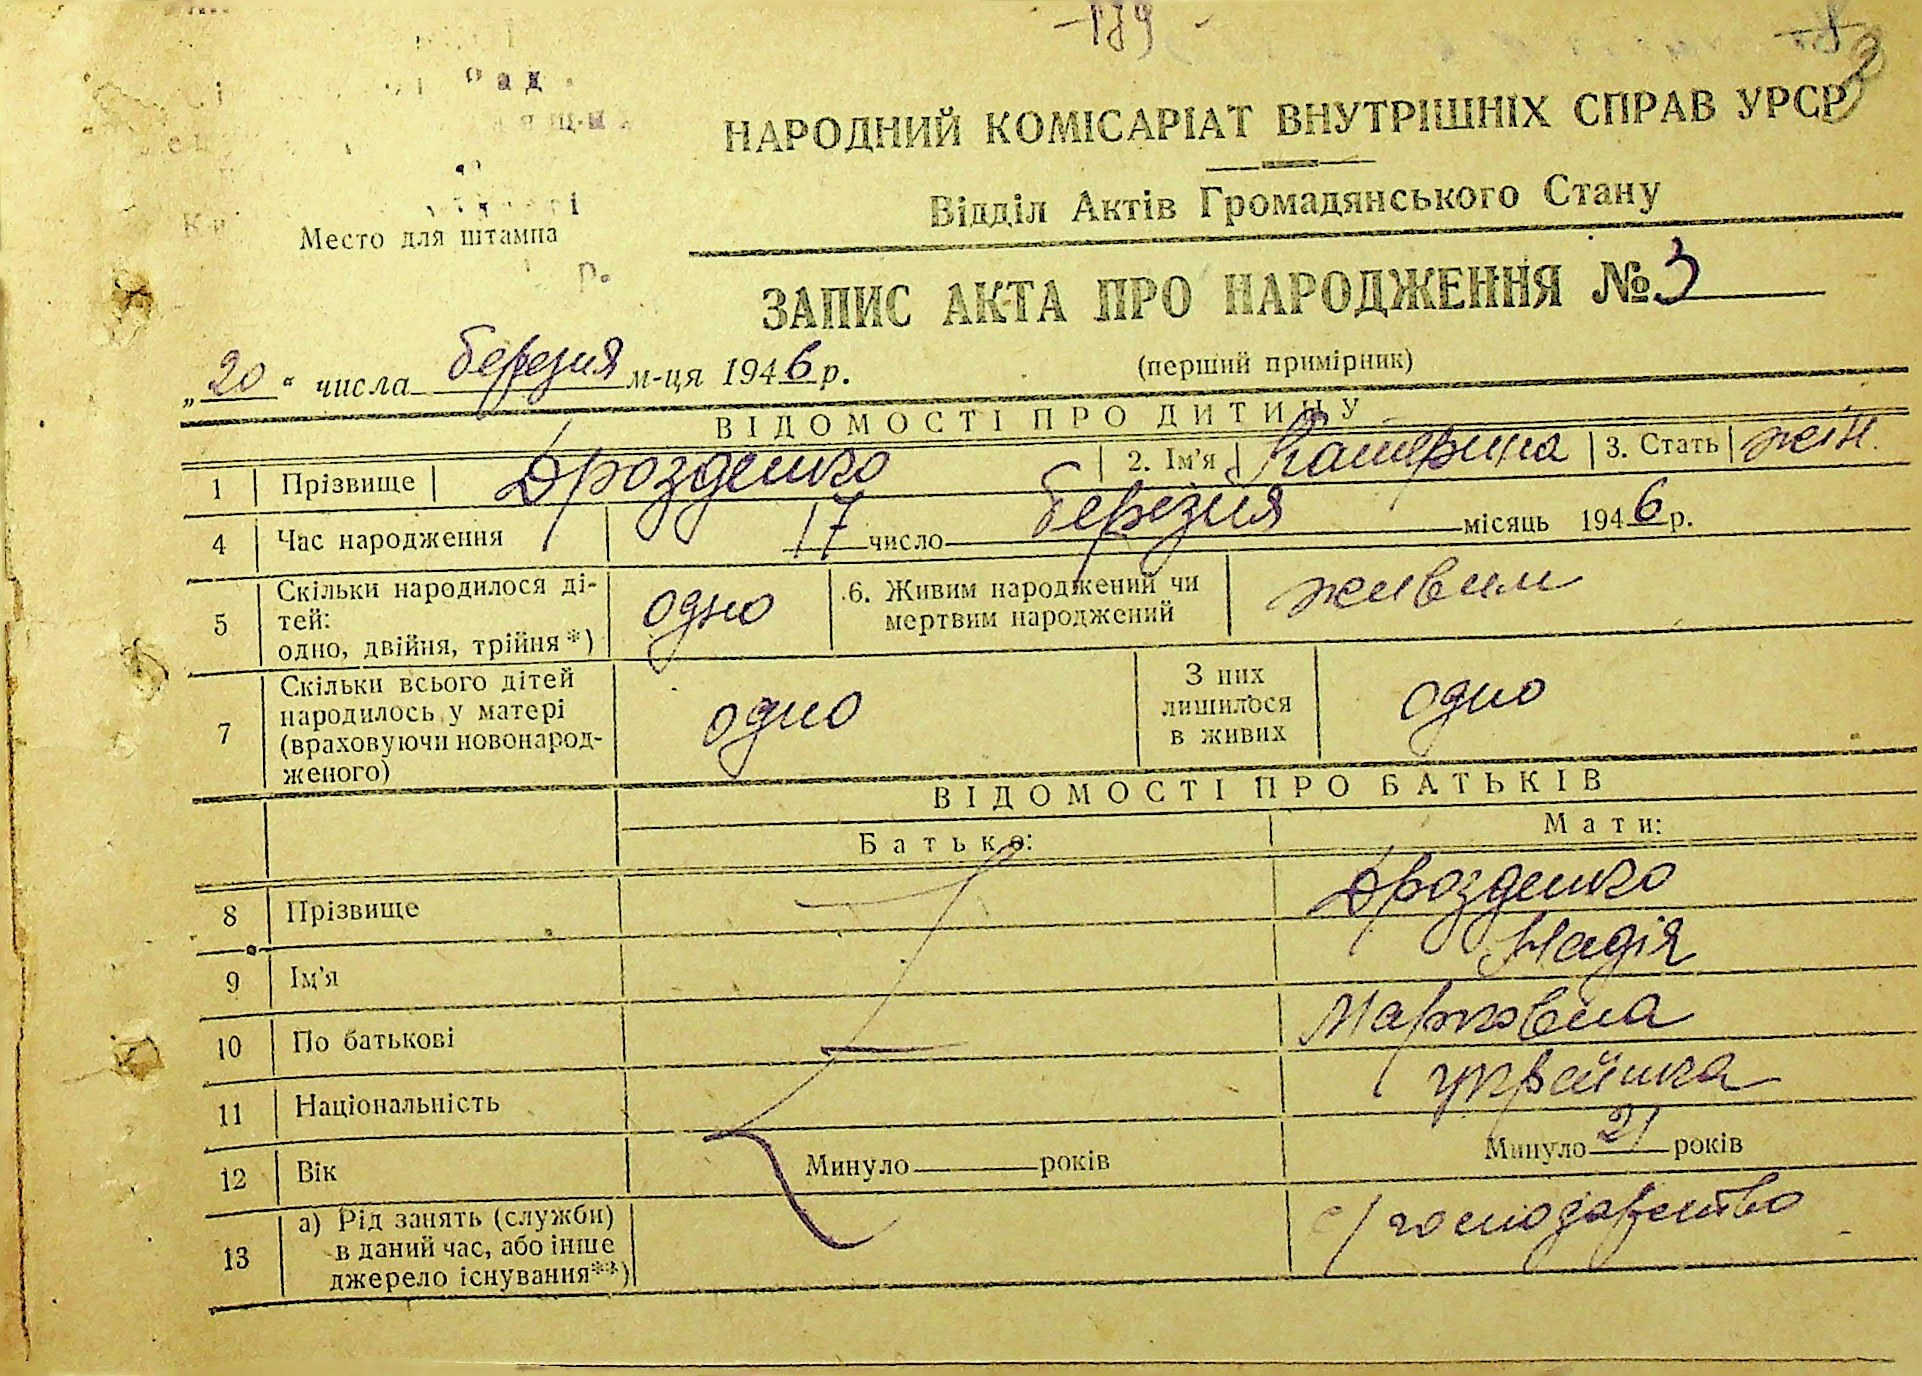 -179
НАРОДНИЙ КОМІСАРІАТ ВНУТРІШНІХ СПРАВ УРСР
Відділ Актів Громадянського Стану
Место для штампа
р.
ЗАПИС АКТА ПРО НАРОДЖЕННЯ № 3
(перший примірник)
„20“ числа березня м-ця 1946 р.
ВІДОМОСТІ ПРО ДИТИНУ
1 Прізвище Дрозденко 2. Ім'я Катерина 3. Стать жін.
4 Час народження 17 число березня місяць 1946 р.
5 Скільки народилося ді-
тей:
одно, двійня, трійня*) одно
6. Живим народжений чи
мертвим народжений живим
7 Скільки всього дітей
народилось у матері
(враховуючи новонарод-
женого) одно
З них
лишилося
в живих одно
ВІДОМОСТІ ПРО БАТЬКІВ
Батько: Мати:
8 Прізвище Дрозденко
9 Ім'я Надія
10 По батькові Марковна
11 Національність українка
12 Вік Минуло років Минуло 21 років
13 а) Рід занять (служби)
в даний час, або інше
джерело існування**) с/господарство